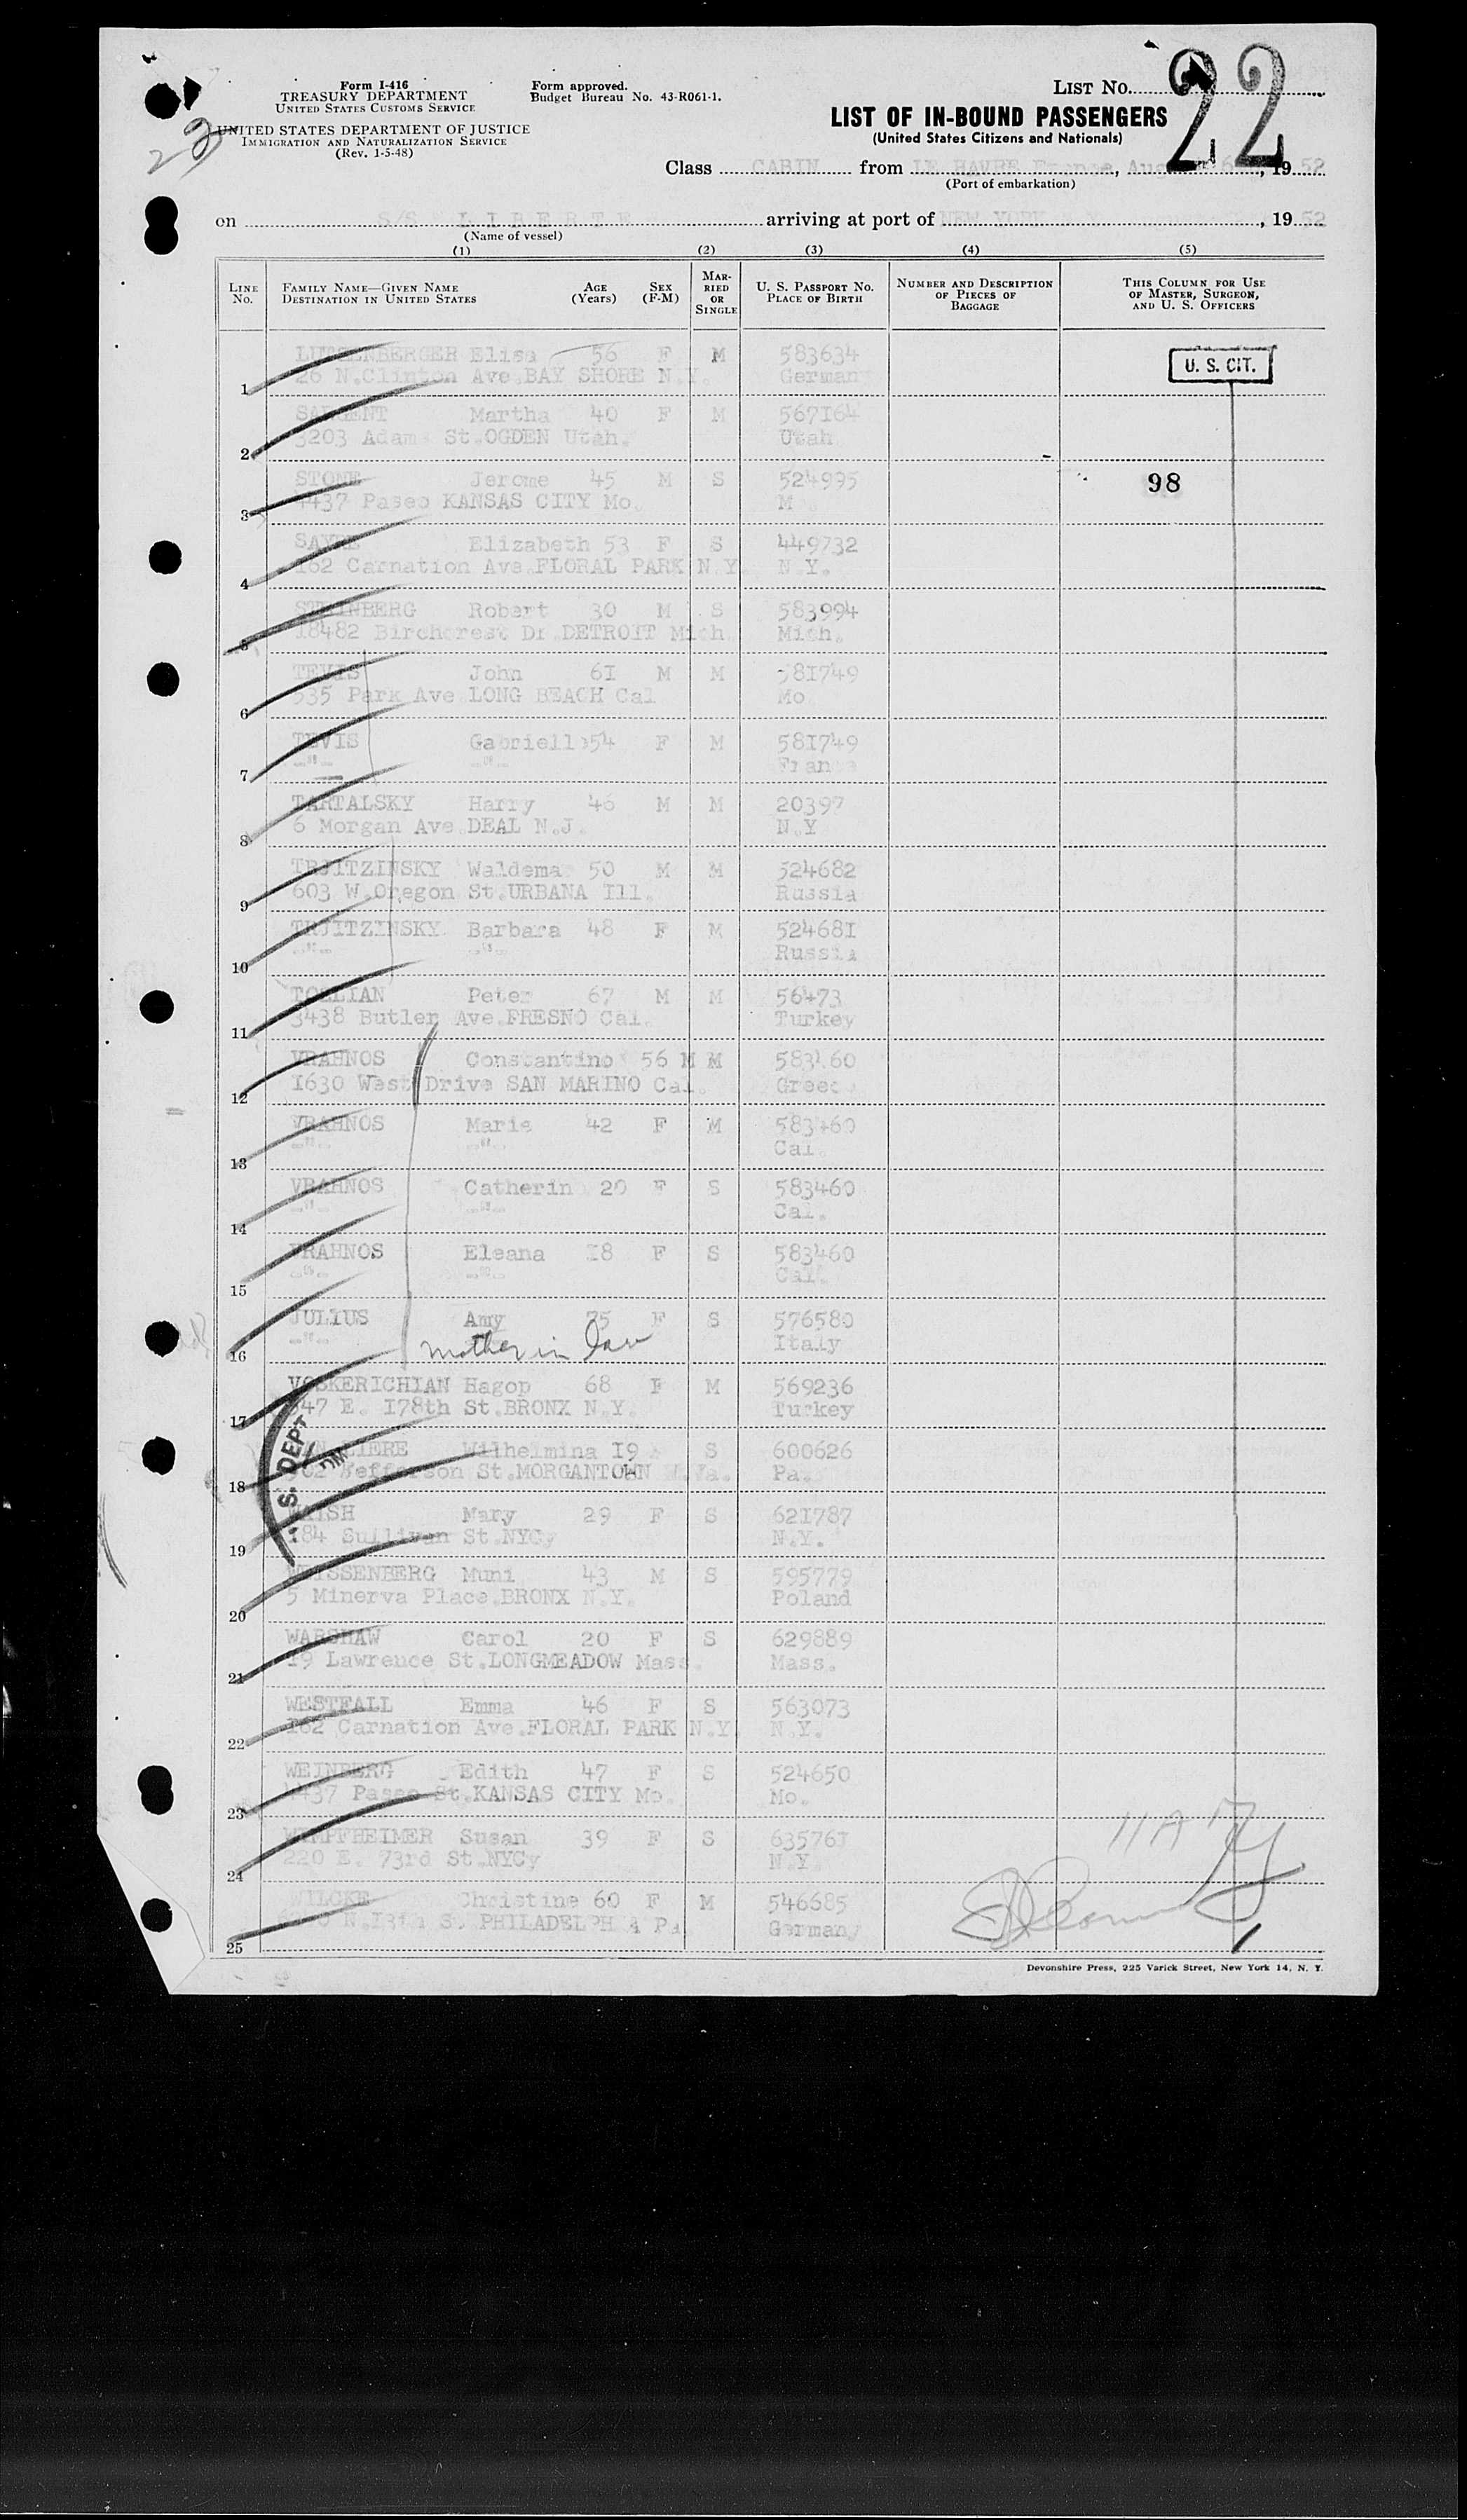 Form I-416
TREASURY DEPARTMENT
UNITED STATES CUSTOMS SERVICE
UNITED STATES DEPARTMENT OF JUSTICE
IMMIGRATION AND NATURALIZATION SERVICE
(Rev. 1-5-48)
Form approved.
Budget Bureau No. 43-R061-1.
LIST No. 22
LIST OF IN-BOUND PASSENGERS
(United States Citizens and Nationals)
Class CABIN from LE HAVRE France, 1952
(Port of embarkation)
on S/S LIBERTE arriving at port of NEW YORK, 1952
(Name of vessel)
(1) (2) (3) (4) (5)
LINE No. FAMILY NAME—GIVEN NAME DESTINATION IN UNITED STATES AGE (Years) SEX (F-M) MARRIED OR SINGLE U. S. PASSPORT No. PLACE OF BIRTH NUMBER AND DESCRIPTION OF PIECES OF BAGGAGE THIS COLUMN FOR USE OF MASTER, SURGEON, AND U. S. OFFICERS
Elisa 56 F M 583634 U. S. CIT.
1 26 N.Clinton Ave.BAY SHORE N.Y. Germany
SARGENT Martha 40 F M 567164
2 3203 Adams St.OGDEN Utah. Utah
STONE Jerome 45 M S 524995 98
3 4437 Paseo KANSAS CITY Mo. M
SAYRE Elizabeth 53 F S 449732
4 162 Carnation Ave.FLORAL PARK N.Y. N.Y.
STEINBERG Robert 30 M S 583994
5 18482 Birchcrest Dr DETROIT Mich. Mich.
TEVIS John 61 M M 581749
6 535 Park Ave LONG BEACH Cal Mo
TEVIS Gabrielle 54 F M 581749
7 -"- -"- France
TARTALSKY Harry 46 M M 20397
8 6 Morgan Ave.DEAL N.J. N.Y
TRJITZINSKY Waldemar 50 M M 524682
9 603 W.Oregon St.URBANA Ill. Russia
TRJITZINSKY Barbara 48 F M 524681
10 -"- -"- Russia
Peter 67 M M 56473
11 3438 Butler Ave.FRESNO Cal. Turkey
VRAHNOS Constantino 56 M M 583460
12 1630 West Drive SAN MARINO Cal. Greece
VRAHNOS Marie 42 F M 583460
13 -"- -"- Cal.
VRAHNOS Catherin 20 F S 583460
14 -"- -"- Cal.
VRAHNOS Eleana 18 F S 583460
15 -"- -"- Cal.
JULIUS Amy 75 F S 576580
16 -"- mother in law Italy
VOSKERICHIAN Hagop 68 F M 569236
17 847 E. 178th St.BRONX N.Y. Turkey
Wilhelmina 19 S 600626
18 Jefferson St.MORGANTOWN W.Va. Pa.
S. DEPT
Mary 29 F S 621787
19 184 Sullivan St.NYCy N.Y.
WEISSENBERG Muni 43 M S 595779
20 5 Minerva Place.BRONX N.Y. Poland
WARSHAW Carol 20 F S 629889
21 19 Lawrence St.LONGMEADOW Mass. Mass.
WESTFALL Emma 46 F S 563073
22 162 Carnation Ave.FLORAL PARK N.Y. N.Y.
WEINBERG Edith 47 F S 524650
23 4437 Paseo St.KANSAS CITY Mo. Mo.
WIMPFHEIMER Susan 39 F S 635761
24 220 E. 73rd St.NYCy N.Y.
WILCKE Christine 60 F M 546685
25 N.13th PHILADELPHIA Pa Germany
Devonshire Press, 225 Varick Street, New York 14, N. Y.